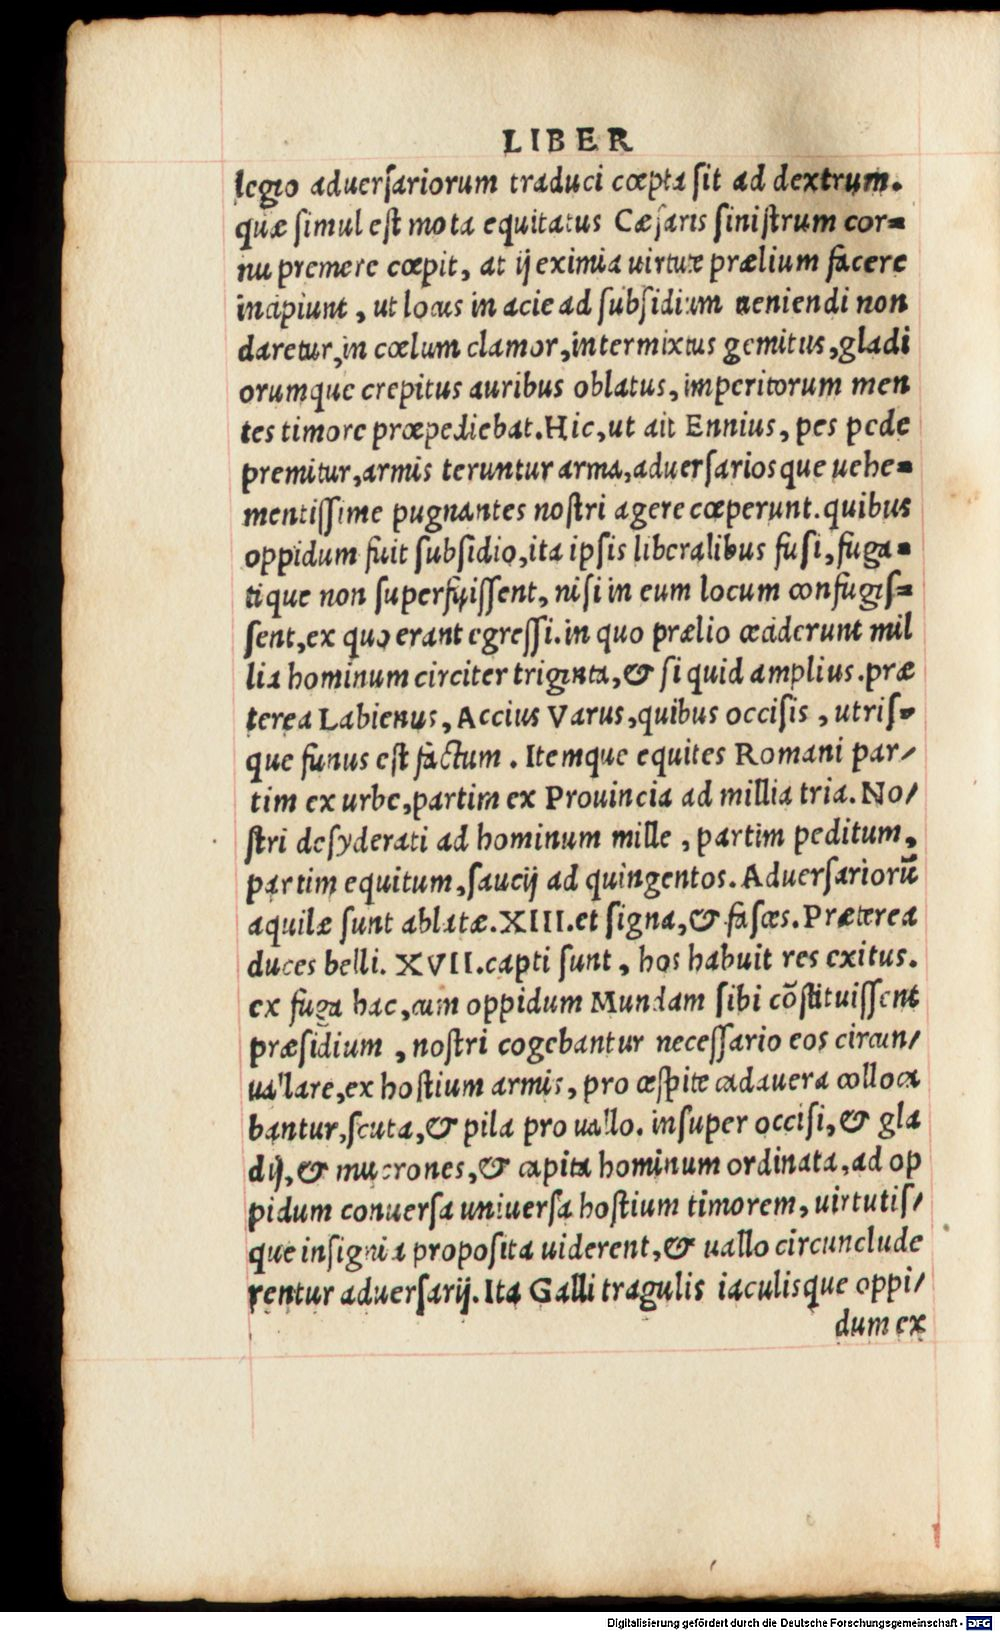 LIBER
legio aduerſariorum traduci cœpta ſit ad dextrum.
quæ ſimul eſt mota equitatus Cæſaris ſiniſtrum cor-
nu premere cœpit, at ij eximia uirtute prælium facere
incipiunt, ut locus in acie ad ſubſidium ueniendi non
daretur, in cœlum clamor, intermixtus gemitus, gladi
orumque crepitus auribus oblatus, imperitorum men
tes timore præpediebat. Hic, ut ait Ennius, pes pede
premitur, armis teruntur arma, aduerſariosque uehe-
mentiſſime pugnantes noſtri agere cœperunt. quibus
oppidum fuit ſubſidio, ita ipſis liberalibus fuſi, fuga-
tique non ſuperfuiſſent, niſi in eum locum confugiſ-
ſent, ex quo erant egreſſi. in quo prælio ceciderunt mil
lia hominum circiter triginta, & ſi quid amplius. præ
terea Labienus, Accius Varus, quibus occiſis, utriſ-
que funus eſt factum. Itemque equites Romani par-
tim ex urbe, partim ex Prouincia ad millia tria. No-
ſtri deſyderati ad hominum mille, partim peditum,
partim equitum, ſaucij ad quingentos. Aduerſariorũ
aquilæ ſunt ablatæ. XIII. et ſigna, & faſces. Præterea
duces belli. XVII. capti ſunt, hos habuit res exitus.
ex fuga hac, cum oppidum Mundam ſibi cõſtituiſſent
præſidium, noſtri cogebantur neceſſario eos circun-
uallare, ex hoſtium armis, pro ceſpite cadauera colloca
bantur, ſcuta, & pila pro uallo. inſuper occiſi, & gla
dij, & mucrones, & capita hominum ordinata, ad op
pidum conuerſa uniuerſa hoſtium timorem, uirtutiſ-
que inſignia propoſita uiderent, & uallo circunclude
rentur aduerſarij. Ita Galli tragulis iaculisque oppi-
dum ex
Digitalisierung gefördert durch die Deutsche Forschungsgemeinschaft - DFG